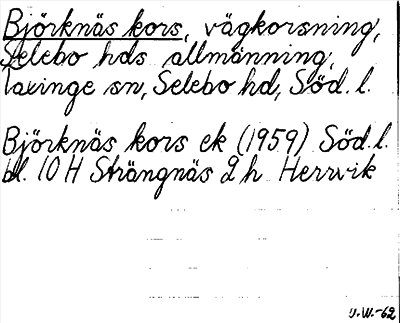 Björknäs kors, vägkorsning,
Selebo hds allmänning,
Taxinge sn, Selebo hd, Söd. l.
Björknäs kors ek (1959) Söd. l.
bl. 10 H Strängnäs 2 h Herrvik
U.W.-62